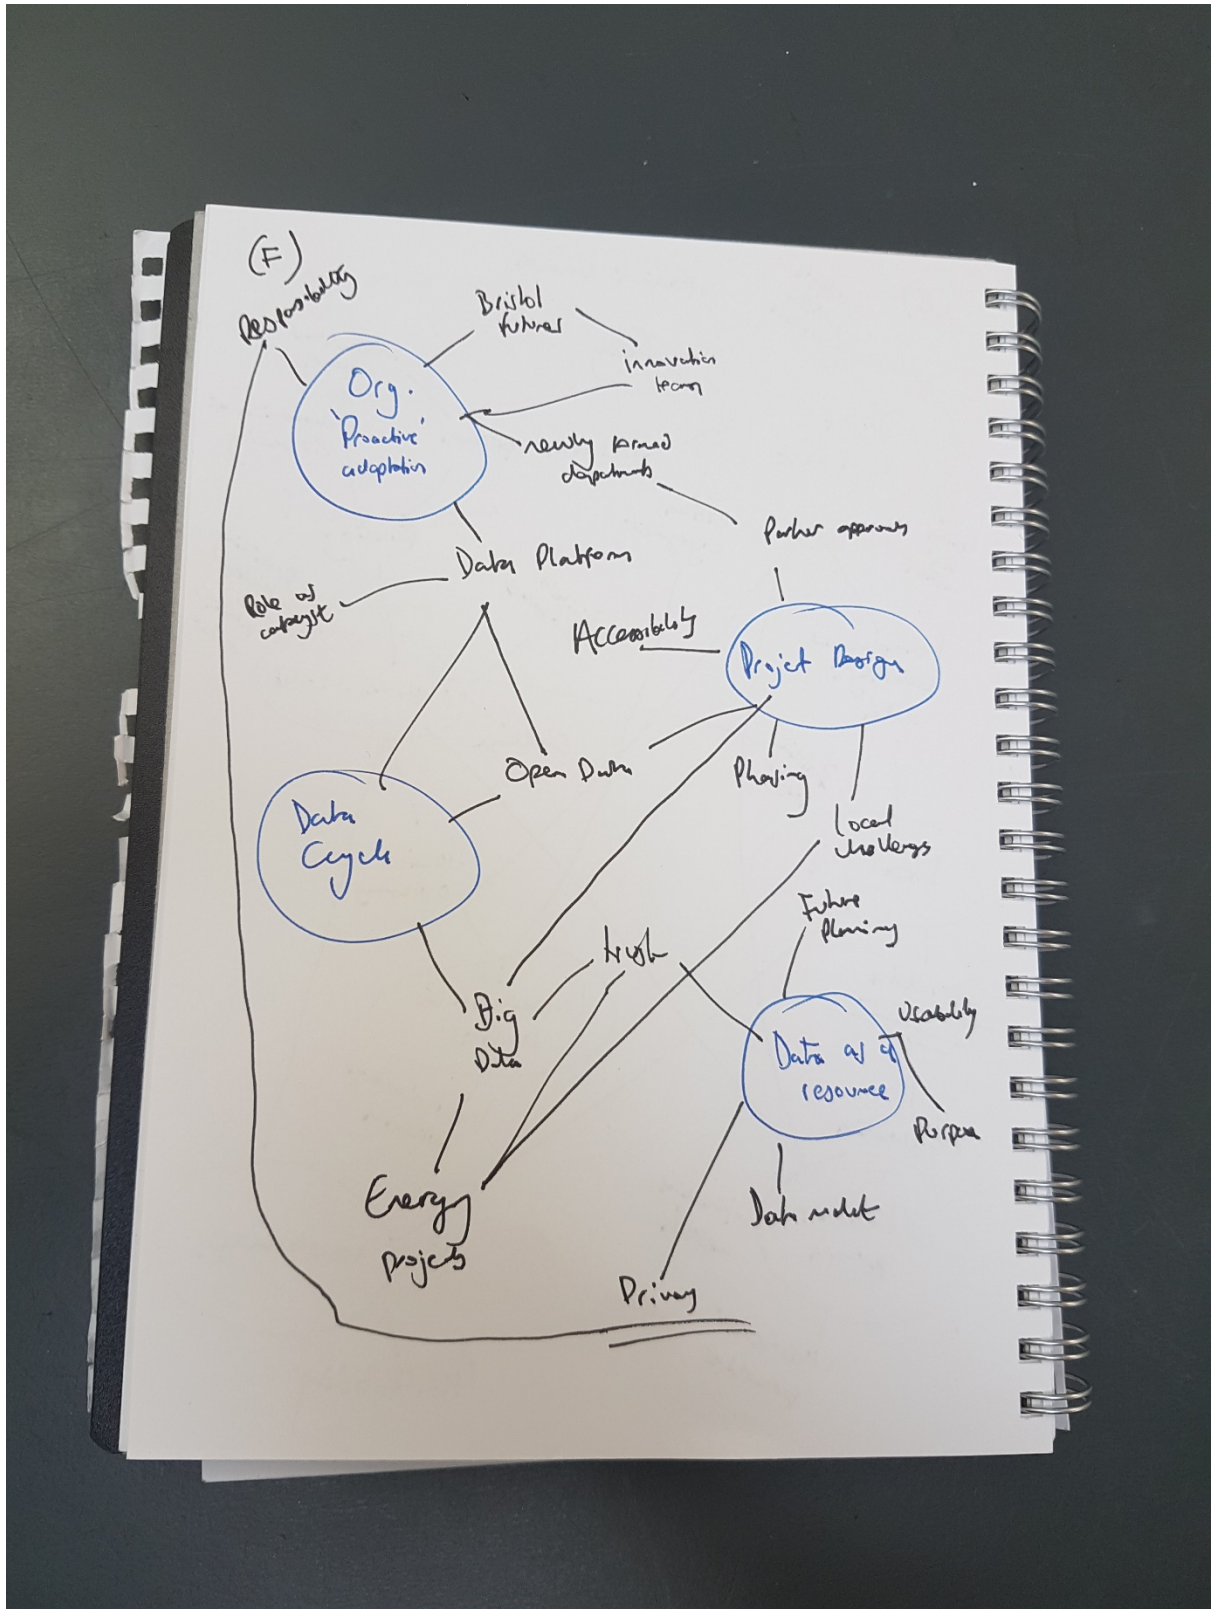 (F)
Responsibility
Bristol
futures
innovation
team
Org.
'Proactive'
adaptation
newly formed
departments
Partner
Data Platform
Role of
Accessibility
Project Design
Open Data
Phasing
Data
Cycle
Local
challenges
Future
planning
trust
Big
Data
Usability
Data as a
resource
Purpose
Energy
projects
Data
Privacy